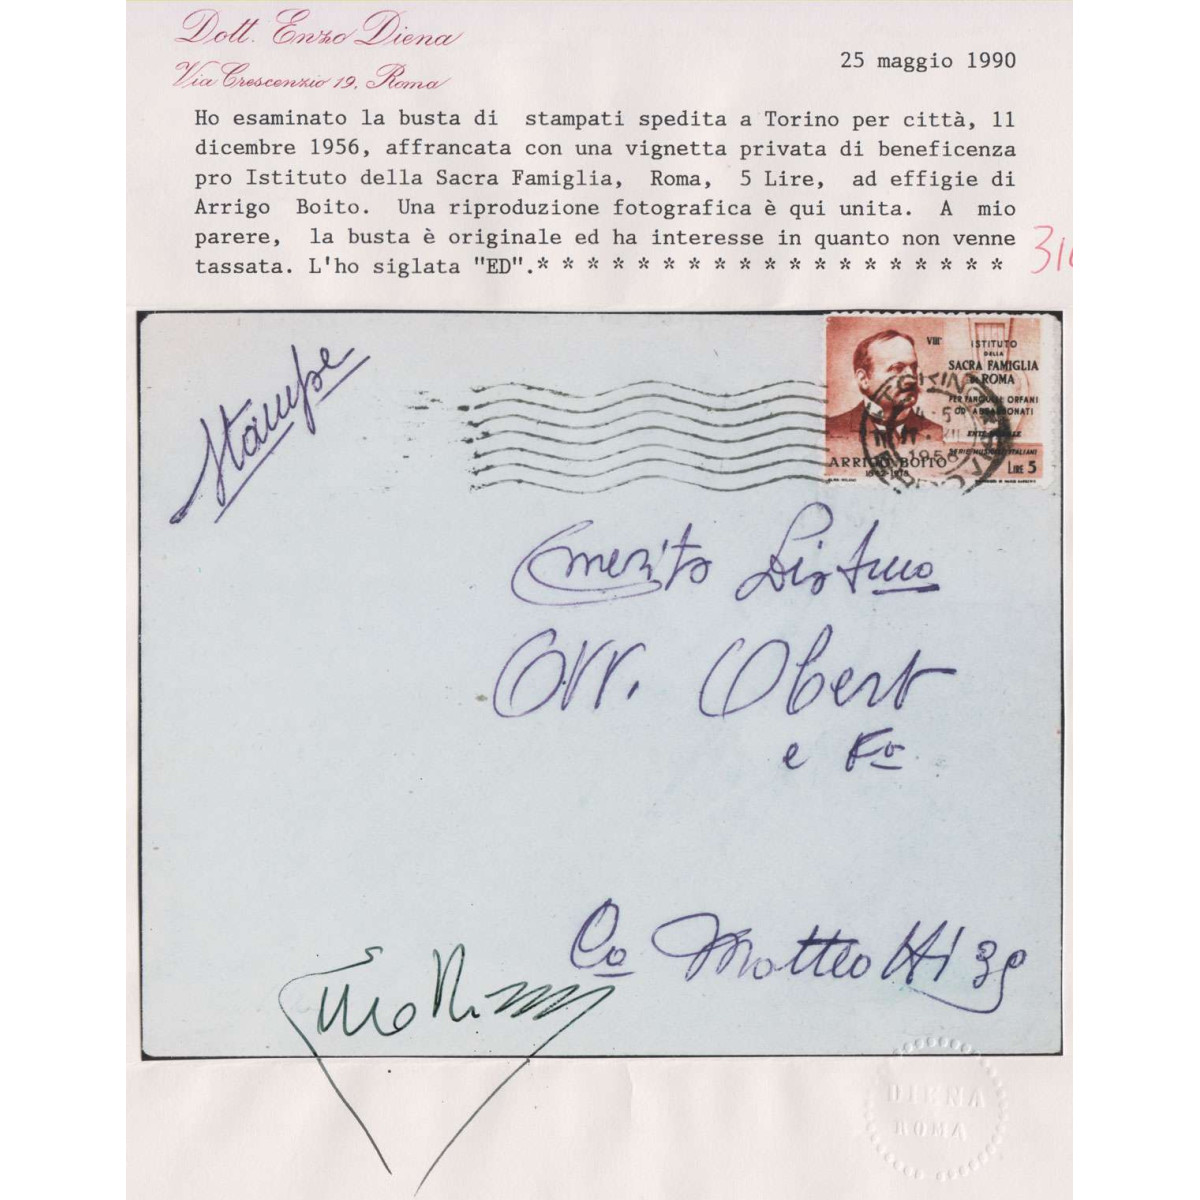 Dott. Enzo Diena
Via Crescenzio 19, Roma
25 maggio 1990
Ho esaminato la busta di stampati spedita a Torino per città, 11
dicembre 1956, affrancata con una vignetta privata di beneficenza
pro Istituto della Sacra Famiglia, Roma, 5 Lire, ad effigie di
Arrigo Boito. Una riproduzione fotografica è qui unita. A mio
parere, la busta è originale ed ha interesse in quanto non venne
tassata. L'ho siglata "ED".* * * * * * * * * * * * * * * * * * *
Stampe
VIIIª ISTITUTO
DELLA
SACRA FAMIGLIA
ROMA
PER FANCIULLI ORFANI
OD ABBANDONATI
ENTE MORALE
SERIE MUSICISTI ITALIANI
ARRIGO BOITO
LIRE 5
1956
Orr. Obert
e
Co Matteotti 39
Enzo Diena
DIENA
ROMA